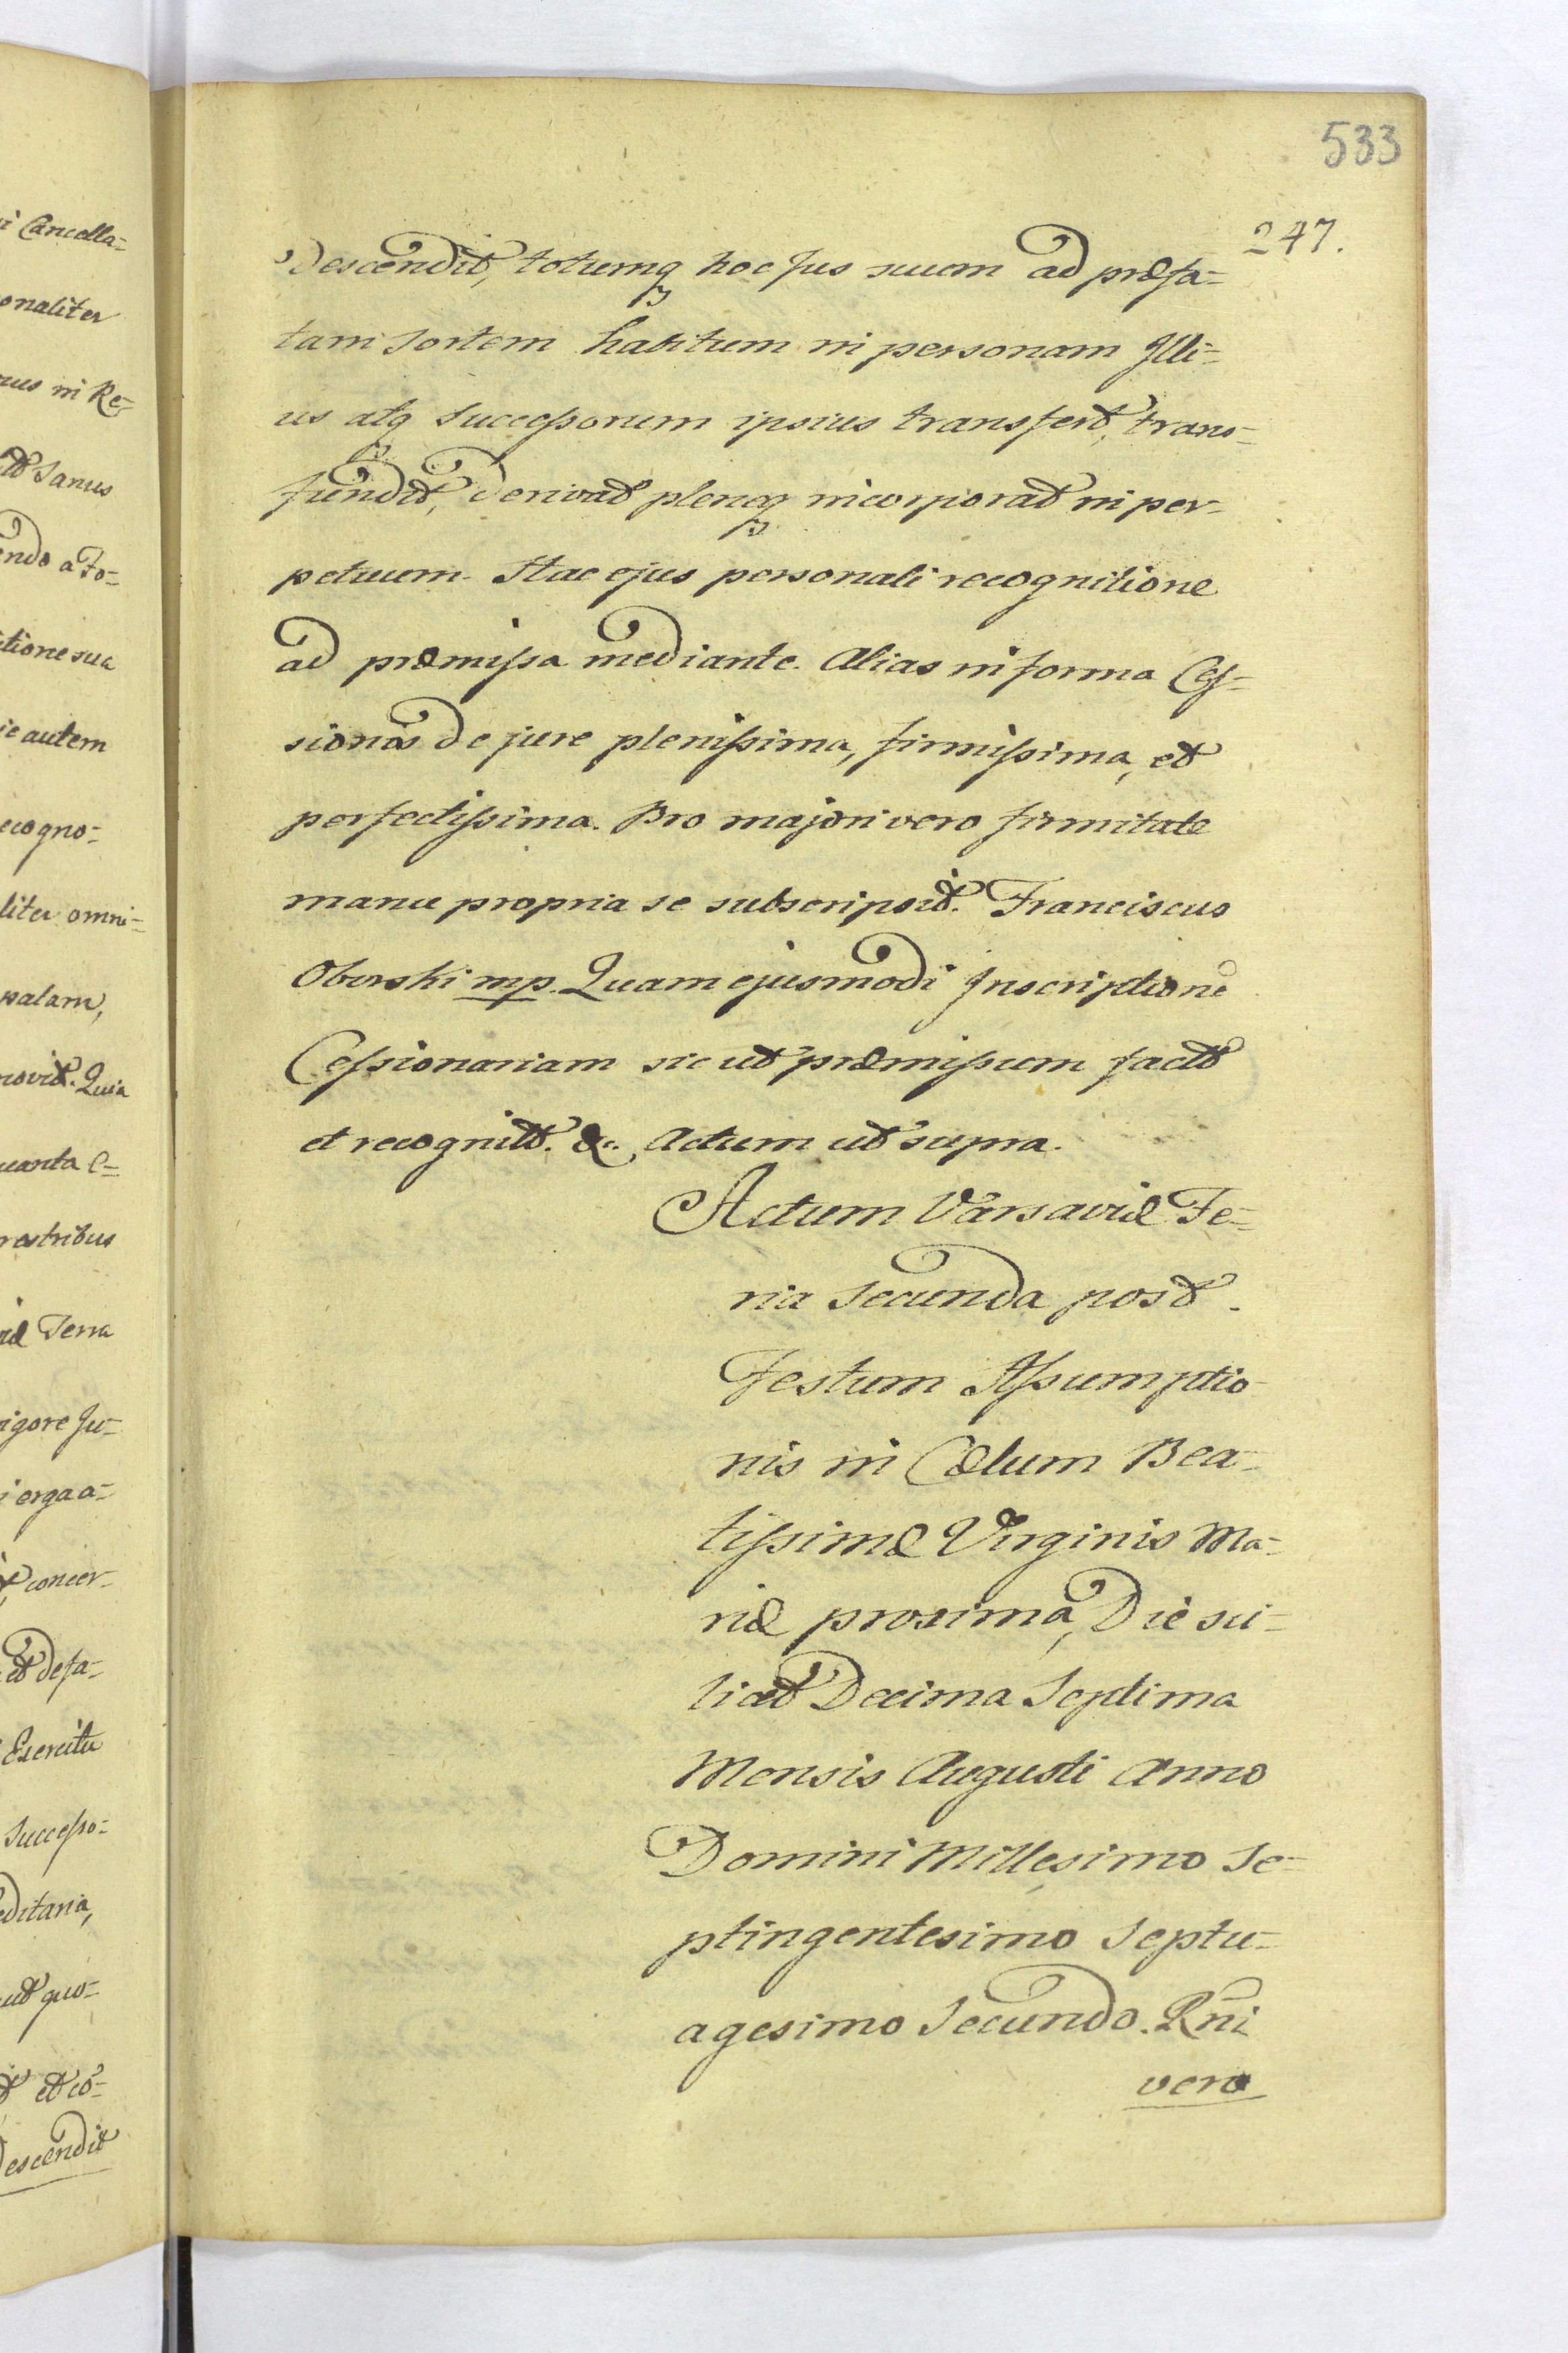 533
247.
Descendit, totumq hoc Jus suum ad præfa=
tam Sortem habitum in personam Illi=
us atq Successorum ipsius transfert, trans=
fundit, derivat pleneq incorporat in per-
petuum. Hac ejus personali recognitione
ad præmissa mediante. Alias in forma Ces=
sionis de jure plenissima, firmissima, et
perfectissima. Pro majori vero firmitate
manu propria se subscripsit. Franciscus
Oborski mp. Quam ejusmodi Inscriptione
Cessionariam sic ut præmissum fact
et recognit. &c. Actum ut supra.
Actum Varsaviæ Fe=
ria Secunda post
Festum Assumptio
nis in Cælum Bea-
tissimæ Virginis Ma-
riæ proxima, Die sci-
licet Decima Septima
Mensis Augusti Anno
Domini Millesimo Se-
ptingentesimo Septu-
agesimo Secundo. Rni
vero
i Cancella=
onaliter
nus in Re-
Sanus
endo a Fo=
itione sua
ie autem
ecogno=
liter omni=
palam,
novit. Quia
uanta e=
restribus
iæ Terra
vigore Ju-
i erga a=
concer-
et defa-
Exercitu
Successo=
editaria,
ut quo-
et co=
Descendit